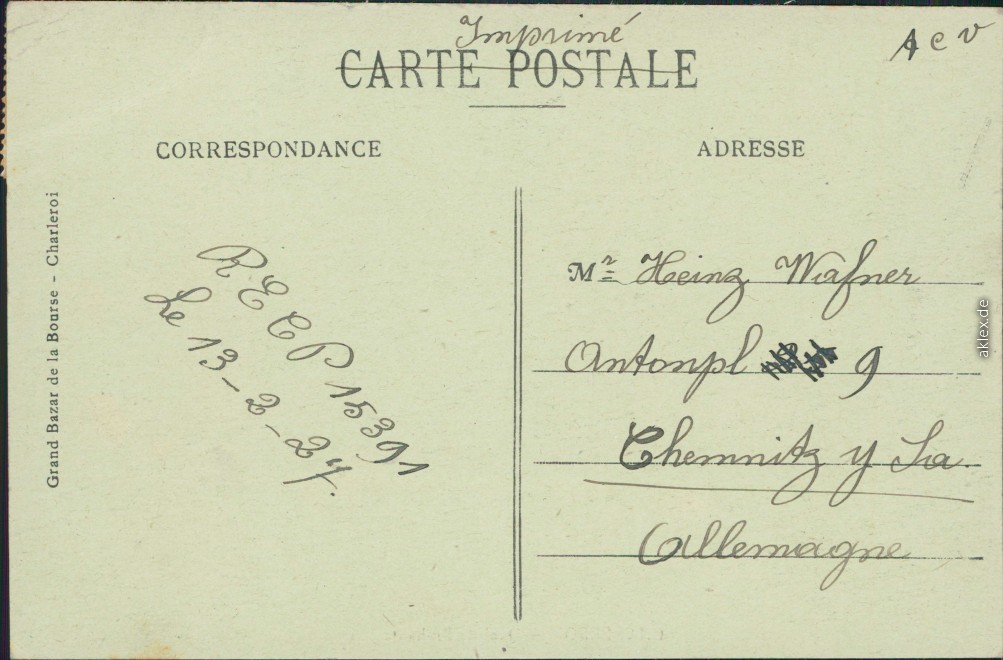 Imprimé
A c v
CARTE POSTALE
CORRESPONDANCE
ADRESSE
Grand Bazar de la Bourse - Charleroi
R E C P 15391
Le 13-2-27.
Mr Heinz Wafner
Antonpl 9
Chemnitz y Sa.
Allemagne
aklex.de